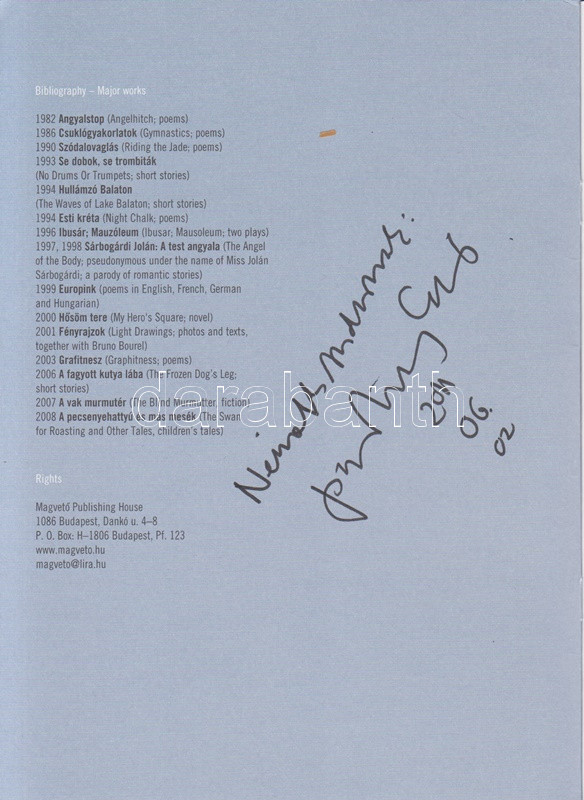 Bibliography – Major works
1982 Angyalstop (Angelhitch; poems)
1986 Csuklógyakorlatok (Gymnastics; poems)
1990 Szódalovaglás (Riding the Jade; poems)
1993 Se dobok, se trombiták
(No Drums Or Trumpets; short stories)
1994 Hullámzó Balaton
(The Waves of Lake Balaton; short stories)
1994 Esti kréta (Night Chalk; poems)
1996 Ibusár; Mauzóleum (Ibusar; Mausoleum; two plays)
1997, 1998 Sárbogárdi Jolán: A test angyala (The Angel
of the Body; pseudonymous under the name of Miss Jolán
Sárbogárdi; a parody of romantic stories)
1999 Europink (poems in English, French, German
and Hungarian)
2000 Hősöm tere (My Hero's Square; novel)
2001 Fényrajzok (Light Drawings; photos and texts,
together with Bruno Bourel)
2003 Grafitnesz (Graphitness; poems)
2006 A fagyott kutya lába (The Frozen Dog's Leg;
short stories)
2007 A vak murmutér (The Blind Murmutter, fiction)
2008 A pecsenyehattyú és más mesék (The Swan
for Roasting and Other Tales, children's tales)
darabanth
Rights
Magvető Publishing House
1086 Budapest, Dankó u. 4–8
P. O. Box: H–1806 Budapest, Pf. 123
www.magveto.hu
magveto@lira.hu
2011
06.
02